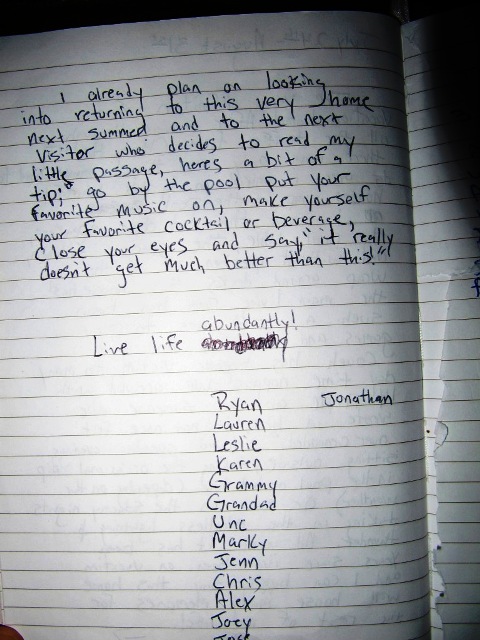 I already plan on looking
into returning to this very home
next summer and to the next
visitor who decides to read my
little passage, heres a bit of a
tip; go by the pool put your
favorite music on, make yourself
your favorite cocktail or beverage,
close your eyes and say "it really
doesn't get much better than this!"
abundantly!
Live life
Ryan Jonathan
Lauren
Leslie
Karen
Grammy
Grandad
Unc
Marky
Jenn
Chris
Alex
Joey